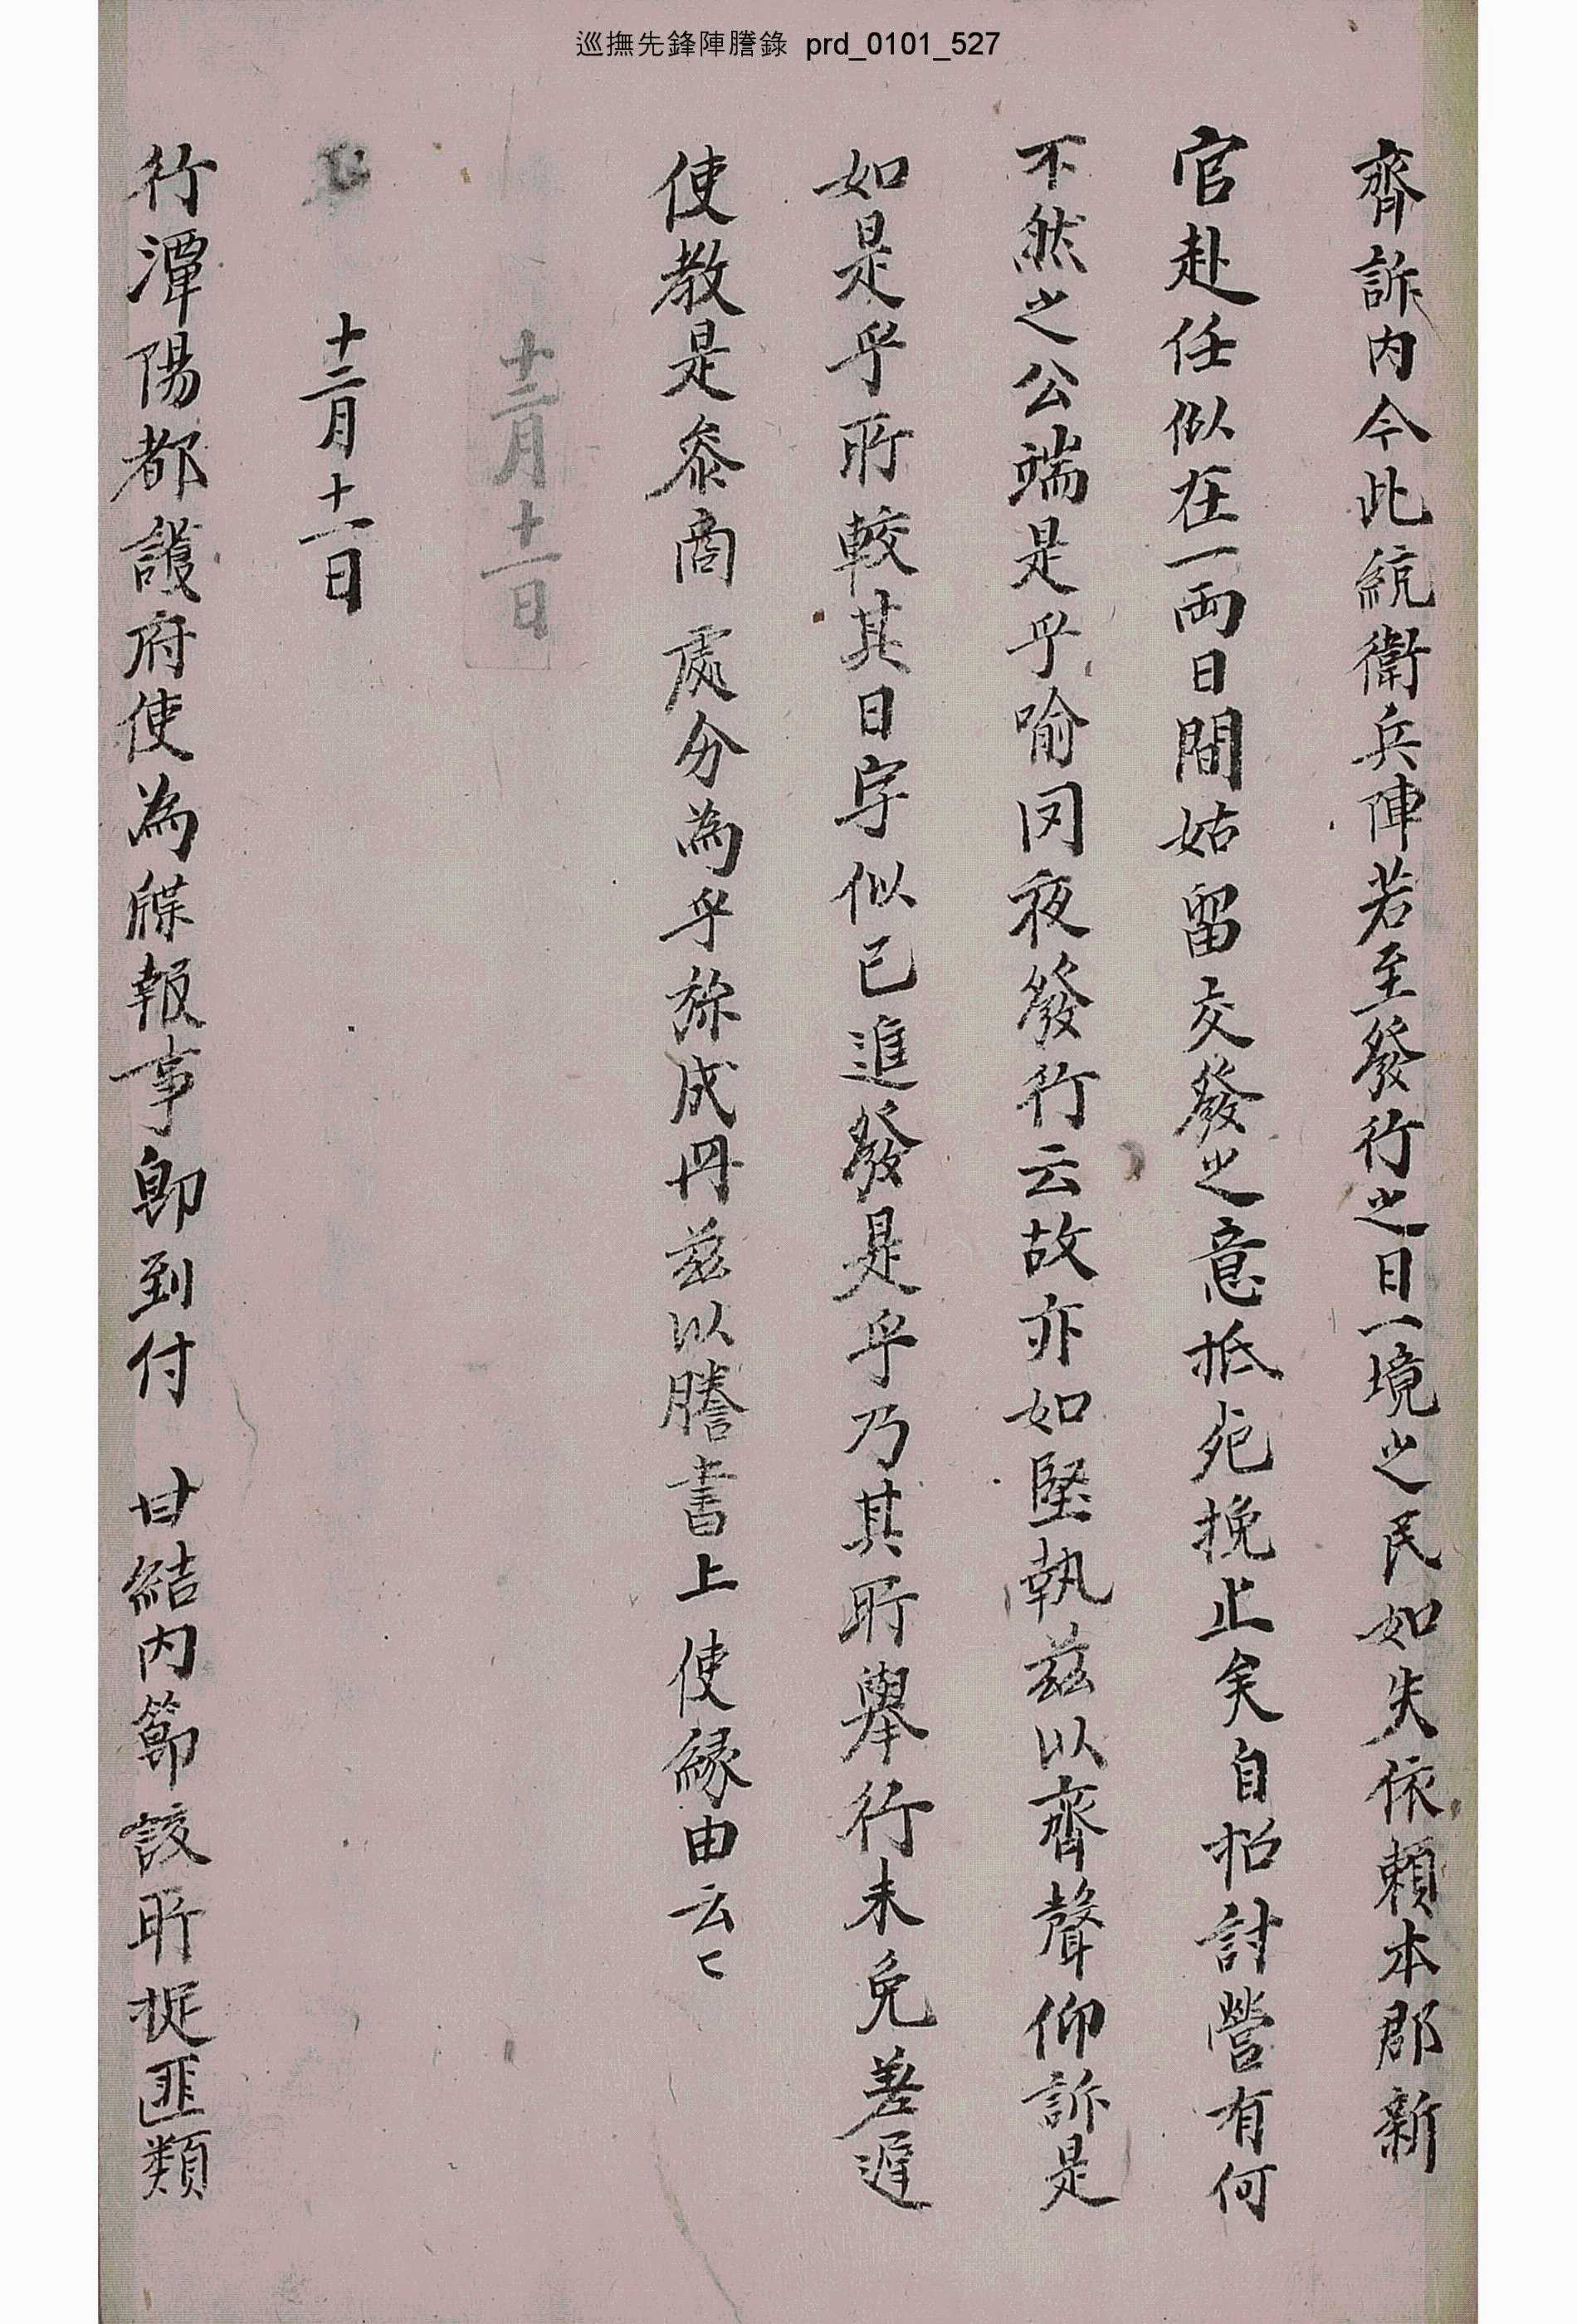 巡撫先鋒陣謄錄 prd_0101_527
齊訴內今此統衛兵陣若至發行之日一境之民如失依賴本郡新
官赴任似在一兩日間姑留交發之意抵死挽止矣自招討營有何
不然之公端是乎喩罔夜發行云故亦如堅執玆以齊聲仰訴是
如是乎所較其日字似已進發是乎乃其所擧行未免差遲
使敎是叅商 處分爲乎旀成冊玆以謄書上 使緣由云〻
十二月十一日
十二月十一日
行潭陽都護府使爲牒報事卽到付 甘結內節該所捉匪類